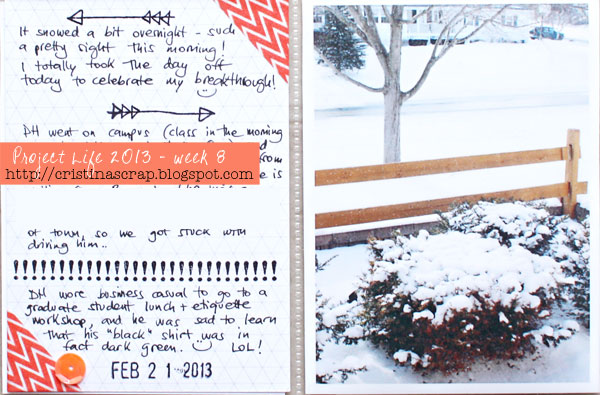 It snowed a bit overnight - such
a pretty sight this morning!
I totally took the day off
today to celebrate my breakthrough!
DH went on campus (class in the morning
Project Life 2013 - week 8
from
http://cristinascrap.blogspot.com
e is
of town, so we got stuck with
driving him..
!!!!!!!!!!!!!!!!!!!!!!!!!!!!!!!!!
DH wore business casual to go to a
graduate student lunch + etiquette
workshop, and he was sad to learn
that his "black" shirt was in
fact dark green. LOL!
FEB 21 2013